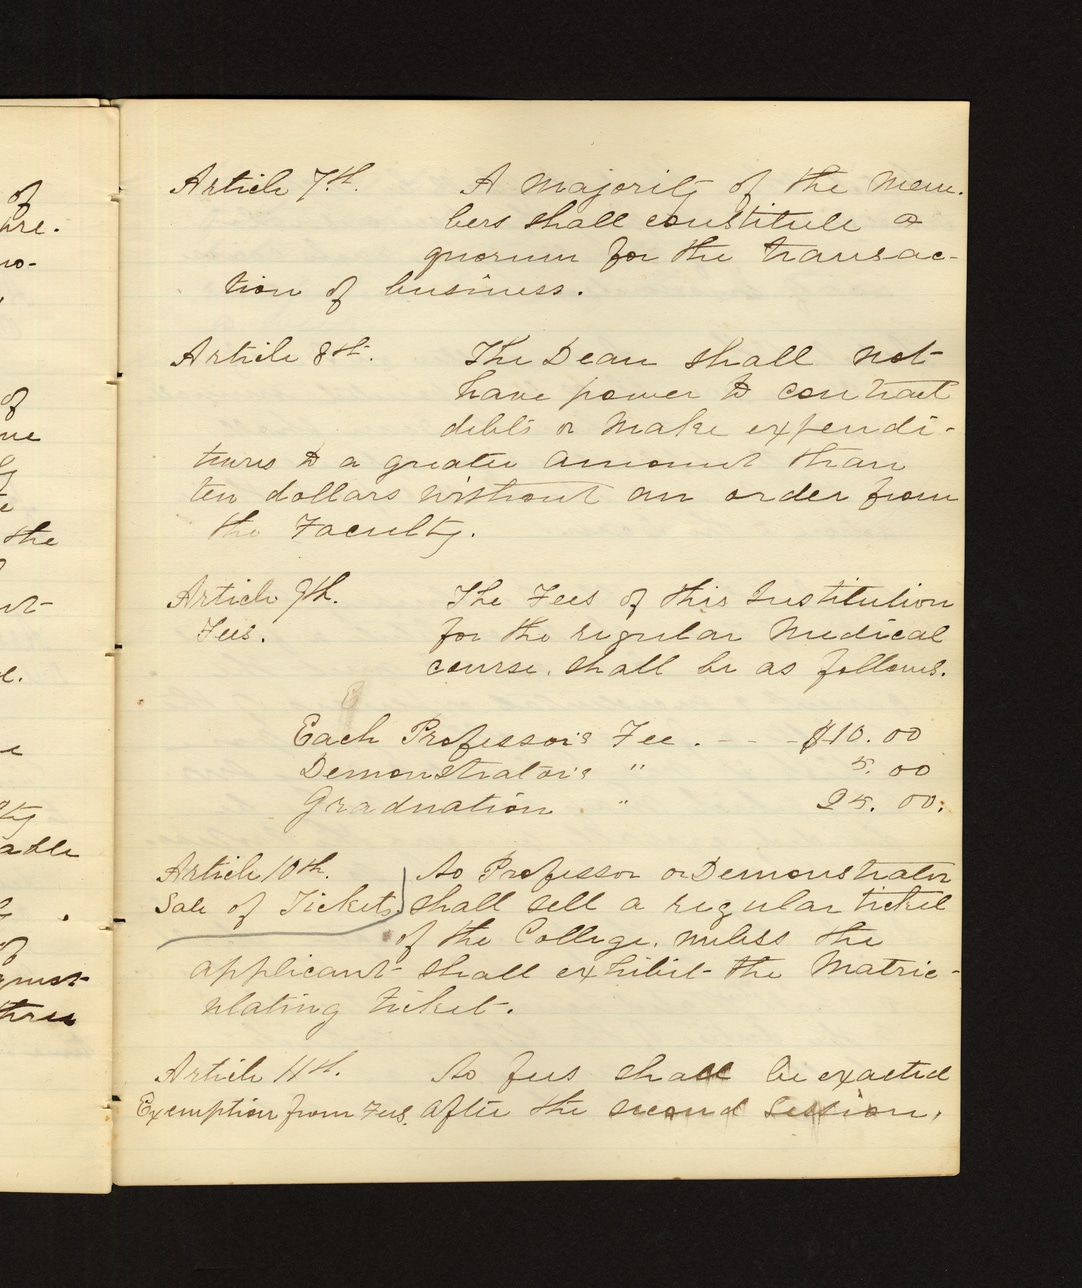 of
are.
no-
of
me
the
nt-
able
must
three
Article 7th. A Majority of the Mem-
bers shall constitute a
quorum for the transac-
tion of business.
Article 8th. The Dean shall not
have power to contract
debts or make expendi-
tures to a greater amount than
ten dollars without an order from
the Faculty.
Article 9th. The Fees of this Institution
Fees. for the regular Medical
course. shall be as follows.
Each Professor's Fee . - - - $10.00
Demonstrator's " 5.00
Graduation " 25.00.
Article 10th. No Professor or Demonstrator
Sale of Tickets. shall sell a regular ticket
of the College. unless the
applicant shall exhibit the Matric-
ulating ticket.
Article 11th. No fees shall be exacted
Exemption from Fees. after the second Session.